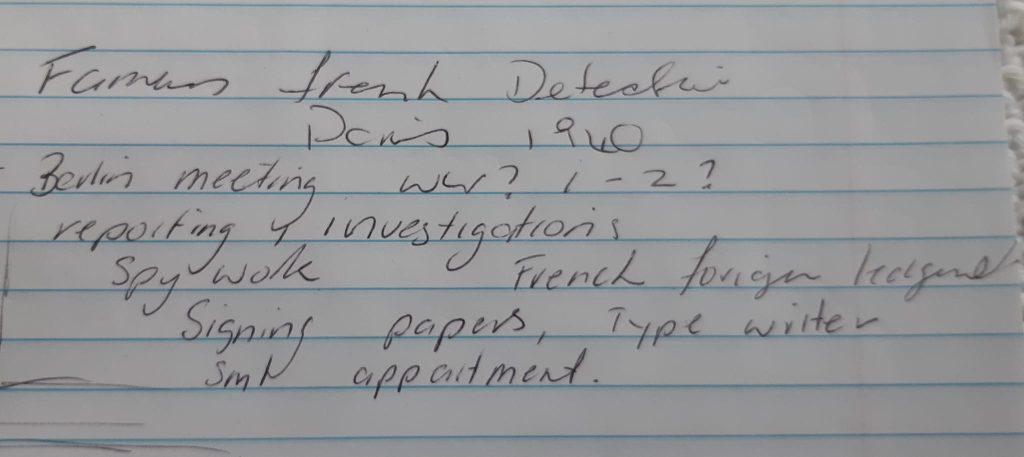 Famous french Detective
Paris 1940
Berlin meeting ww? 1-2?
reporting & investigations
Spy work French foriegn
Signing papers, Type writer
appartment.